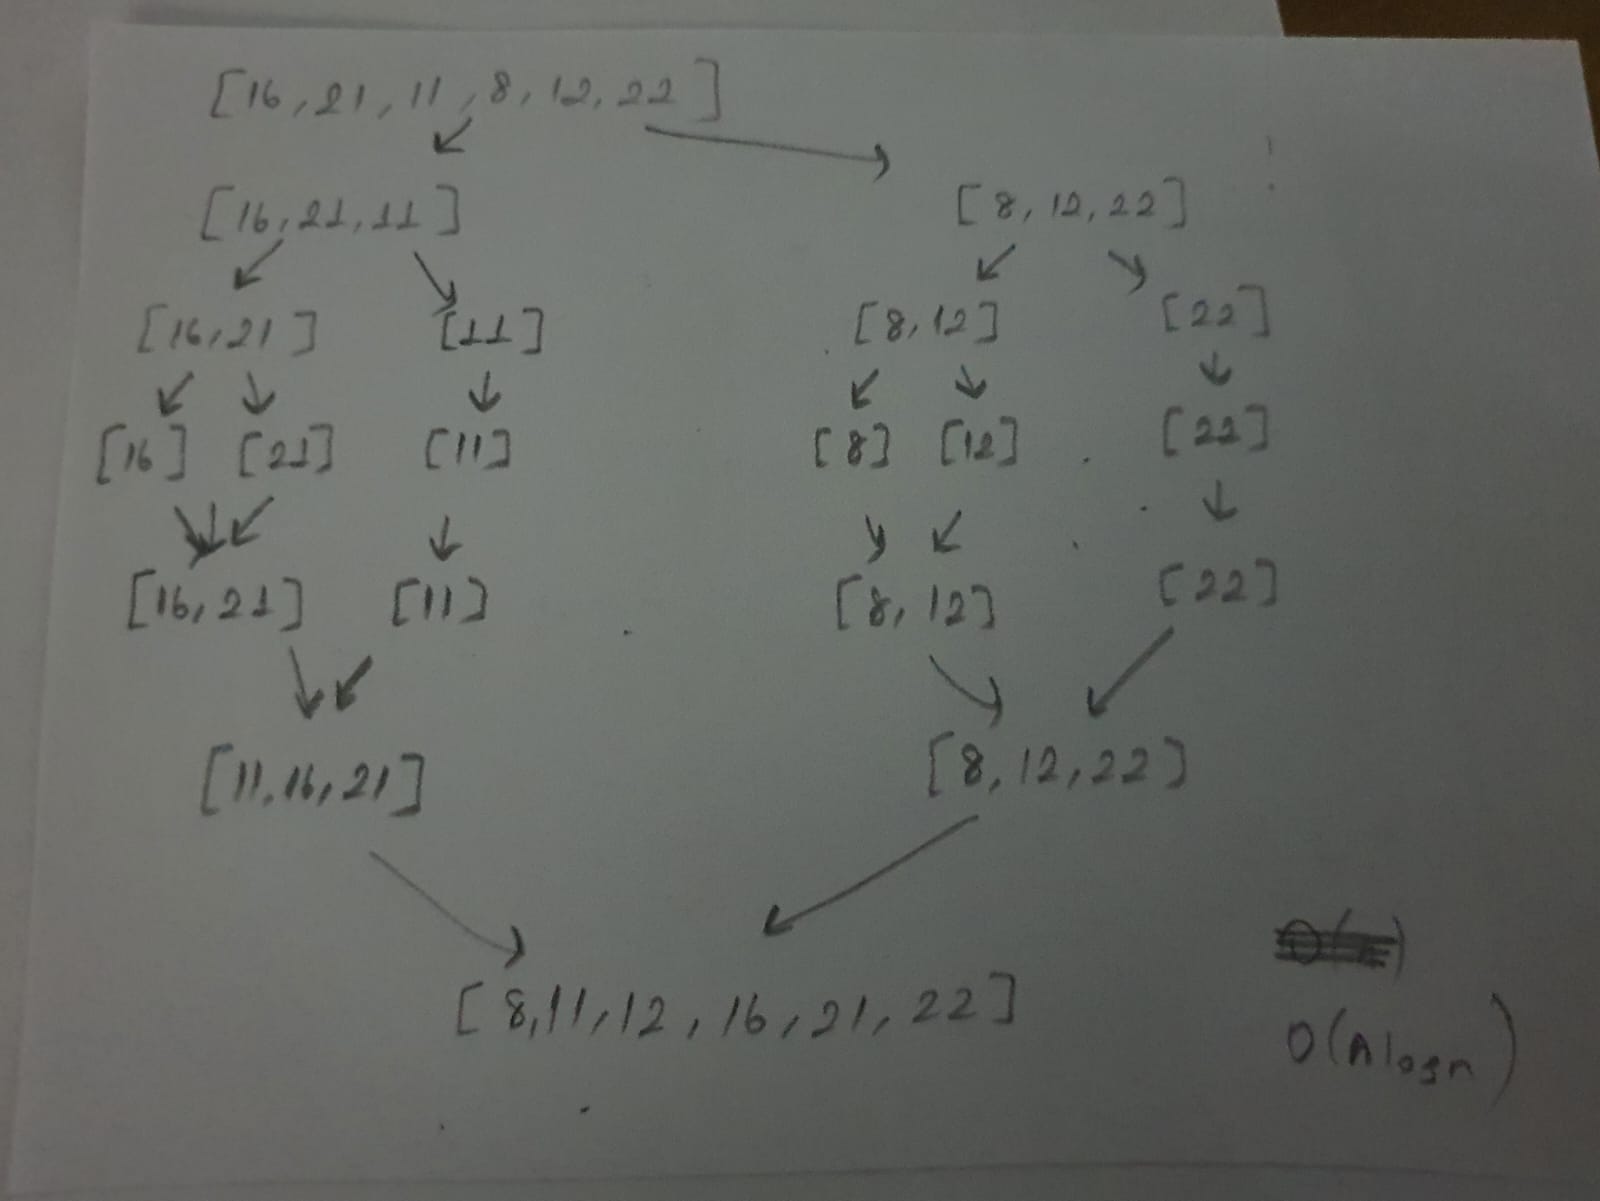 [16,21,11,8,12,22]
[16,21,11] [8,12,22]
[16,21] [11] [8,12] [22]
[16] [21] [11] [8] [12] [22]
[16,21] [11] [8,12] [22]
[11,16,21] [8,12,22]
[8,11,12,16,21,22]
O(nlogn)